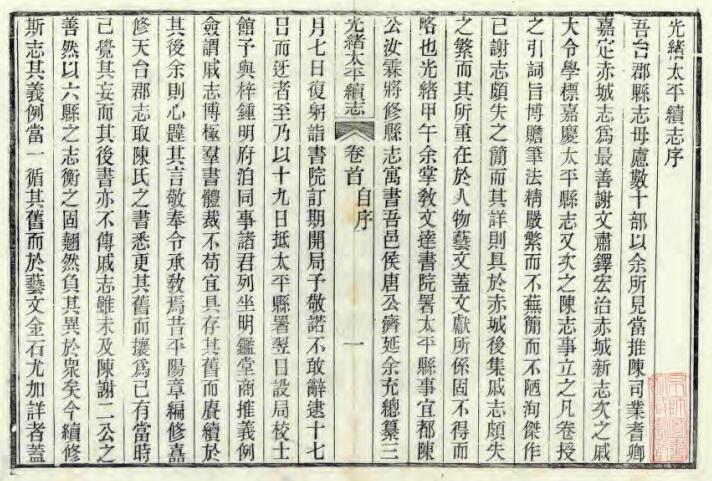 光緒太平續志序
吾台郡縣志毋慮數十部以余所見當推陳司業耆卿
嘉定赤城志爲最善謝文肅鐸宏治赤城新志次之戚
大令學標嘉慶太平縣志又次之陳志事立之凡卷授
之引詞旨博贍筆法精嚴繁而不蕪簡而不陋洵傑作
已謝志頗失之簡而其詳則具於赤城後集戚志頗失
之繁而其所重在於人物藝文蓋文獻所係固不得而
略也光緒甲午余掌教文達書院署太平縣事宜都陳
公汝霖將修縣志寓書吾邑侯唐公濟延余充總纂三
光緒太平續志
卷首
自序
一
月七日復躬詣書院訂期開局予敬諾不敢辭逮十七
日而迓者至乃以十九日抵太平縣署翌日設局校士
館予與梓鍾明府洎同事諸君列坐明鑑堂商推義例
僉謂戚志博極羣書體裁不苟宜具存其舊而賡續於
其後余則心韙其言敬奉令承教焉昔平陽章編修嘉
修天台郡志取陳氏之書悉更其舊而攘爲已有當時
已覺其妄而其後書亦不傳戚志雖未及陳謝二公之
善然以六縣之志衡之固翹然負其異於衆矣今續修
斯志其義例當一循其舊而於藝文金石尤加詳者蓋